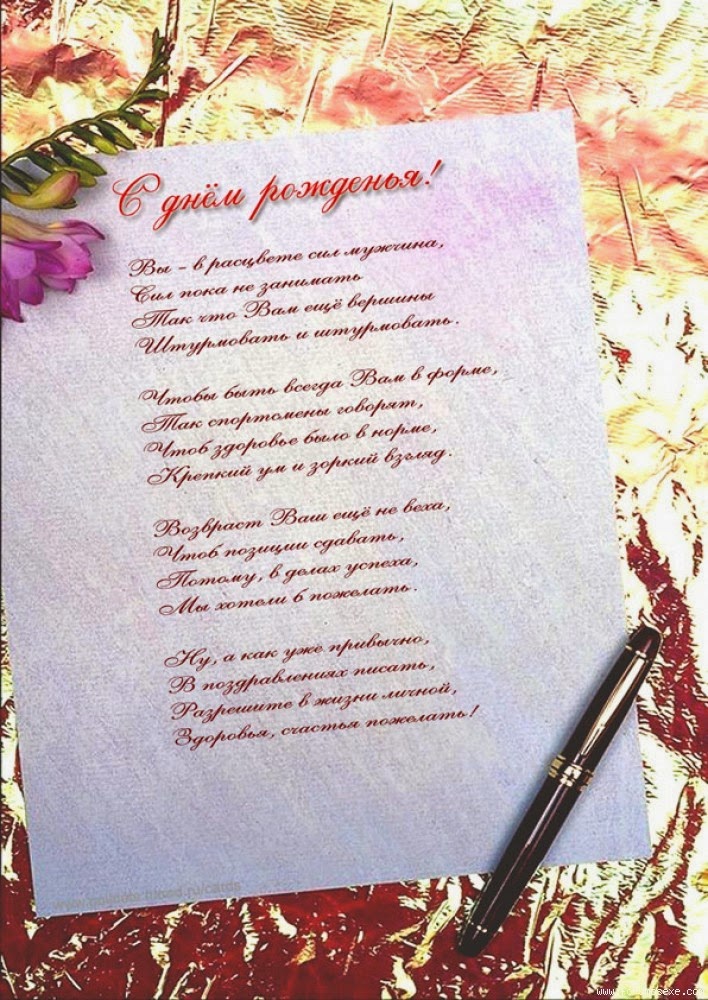 С днём рожденья!
Вы – в расцвете сил мужчина,
Сил пока не занимать
Так что Вам ещё вершины
Штурмовать и штурмовать.
Чтобы быть всегда Вам в форме,
Так спортсмены говорят,
Чтоб здоровье было в норме,
Крепкий ум и зоркий взгляд.
Возвраст Ваш ещё не веха,
Чтоб позиции сдавать,
Потому, в делах успеха,
Мы хотели б пожелать.
Ну, а как уже привычно,
В поздравлениях писать,
Разрешите в жизни личной,
Здоровья, счастья пожелать!